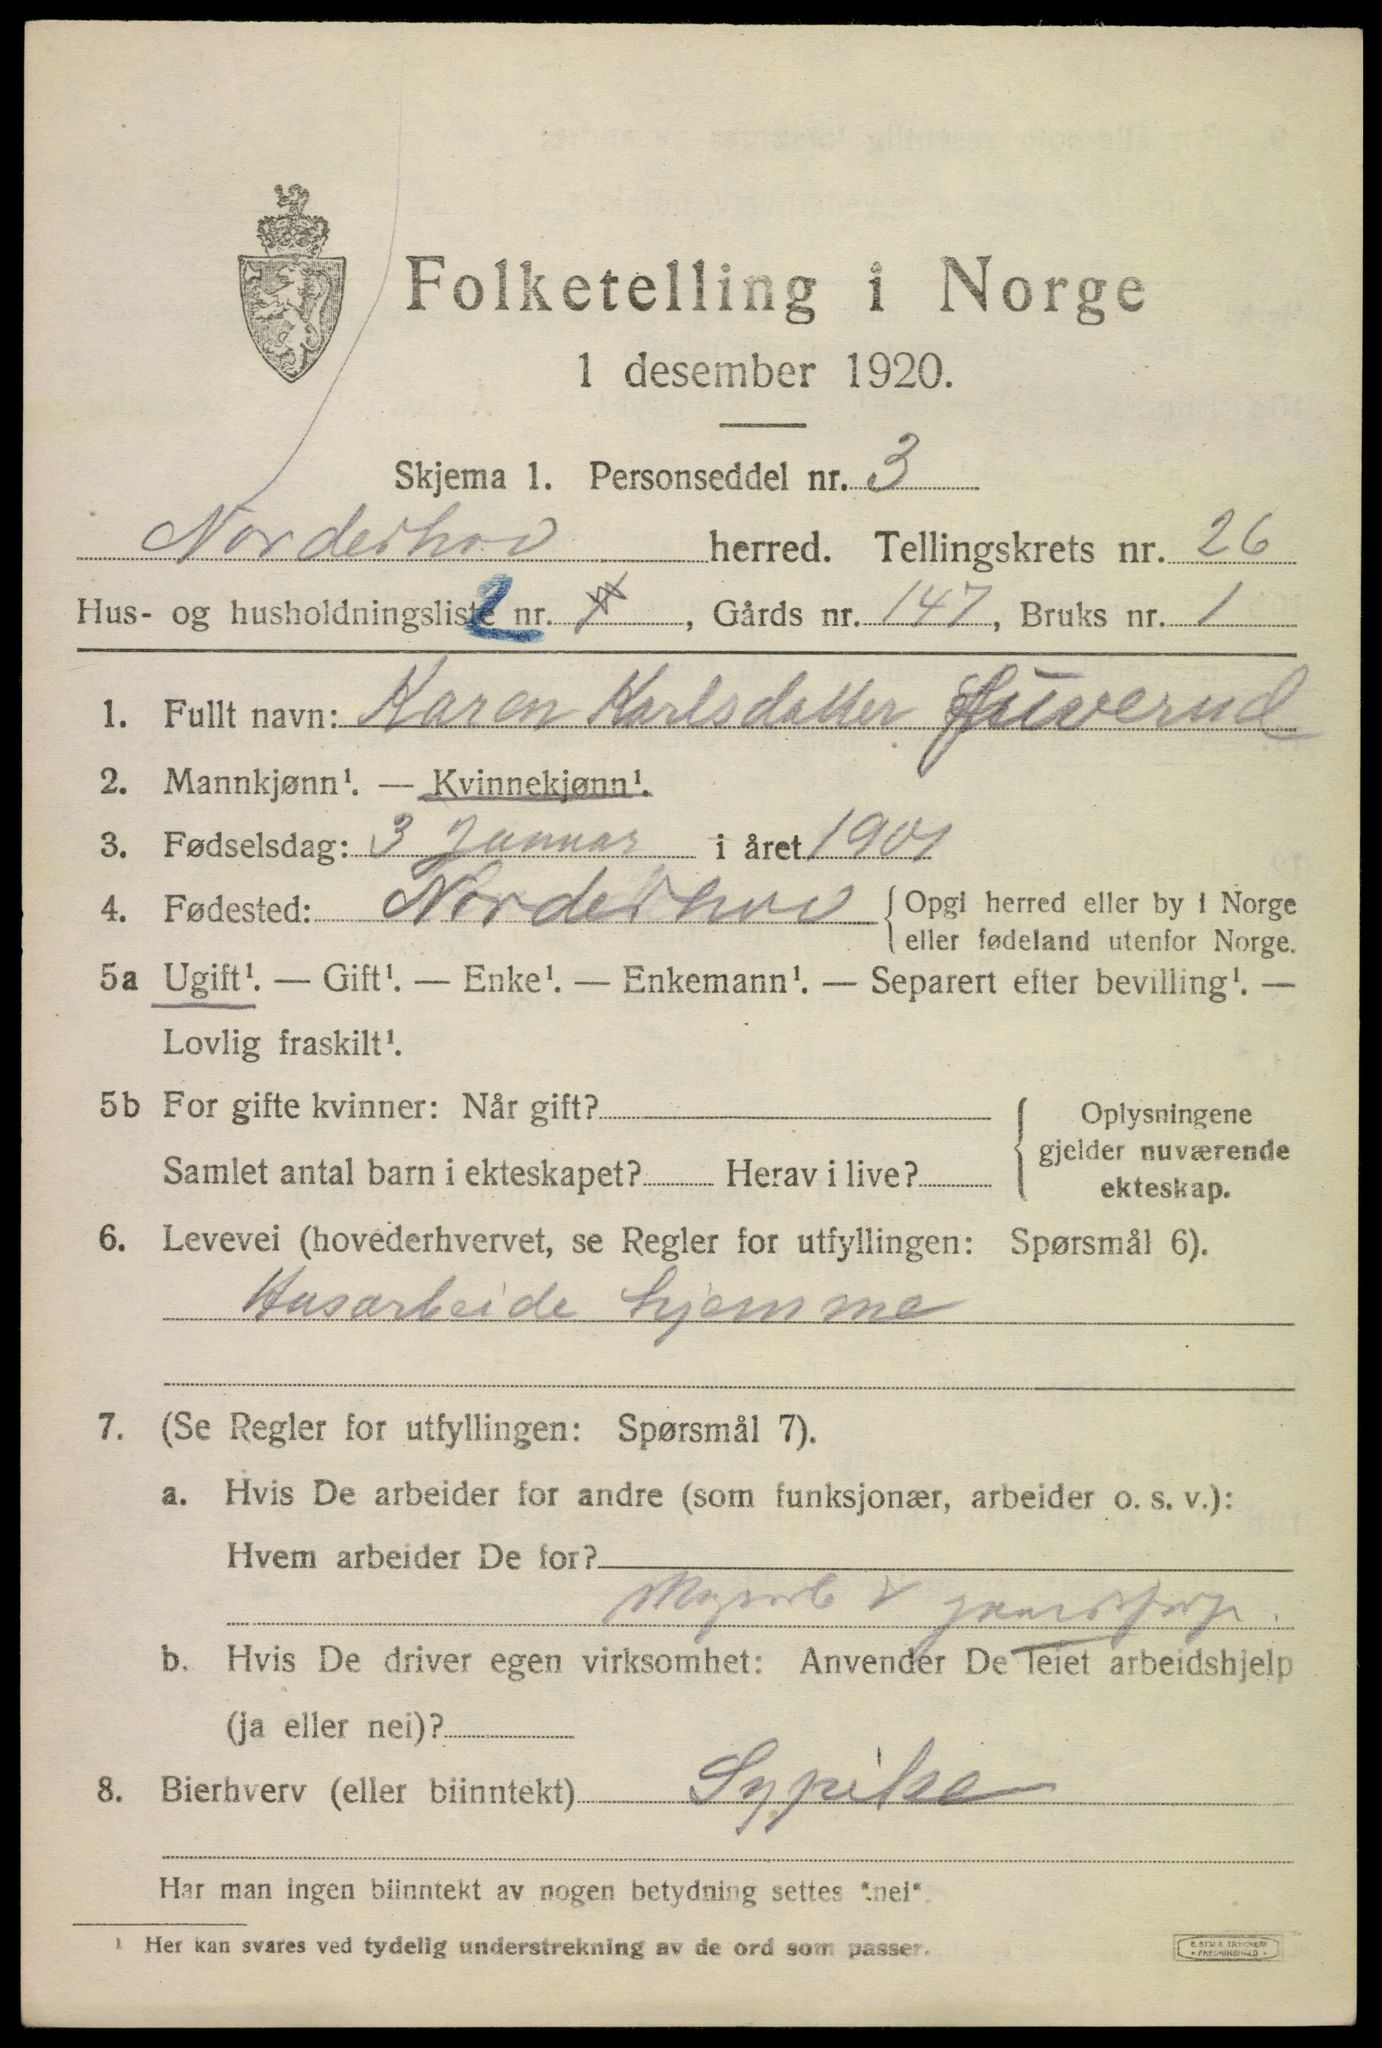 Folketelling i Norge
1 desember 1920.
Skjema 1. Personseddel nr. 3
Norderhov herred. Tellingskrets nr. 26
Hus- og husholdningsliste nr. 2, Gårds nr. 147, Bruks nr. 1
1. Fullt navn: Karen Karlsdatter
2. Mannkjønn¹. — Kvinnekjønn¹.
3. Fødselsdag: 3 Januar i året 1901
4. Fødested: Norderhov { Opgi herred eller by i Norge
eller fødeland utenfor Norge.
5a Ugift¹. — Gift¹. — Enke¹. — Enkemann¹. — Separert efter bevilling¹. —
Lovlig fraskilt¹.
5b For gifte kvinner: Når gift? { Oplysningene
gjelder nuværende
Samlet antal barn i ekteskapet? Herav i live?
ekteskap.
6. Levevei (hovederhvervet, se Regler for utfyllingen: Spørsmål 6).
Husarbeide hjemme
7. (Se Regler for utfyllingen: Spørsmål 7).
a. Hvis De arbeider for andre (som funksjonær, arbeider o. s. v.):
Hvem arbeider De for?
b. Hvis De driver egen virksomhet: Anvender De leiet arbeidshjelp
(ja eller nei)?
8. Bierhverv (eller biinntekt) Sypike
Har man ingen biinntekt av nogen betydning settes "nei".
¹ Her kan svares ved tydelig understrekning av de ord som passer.